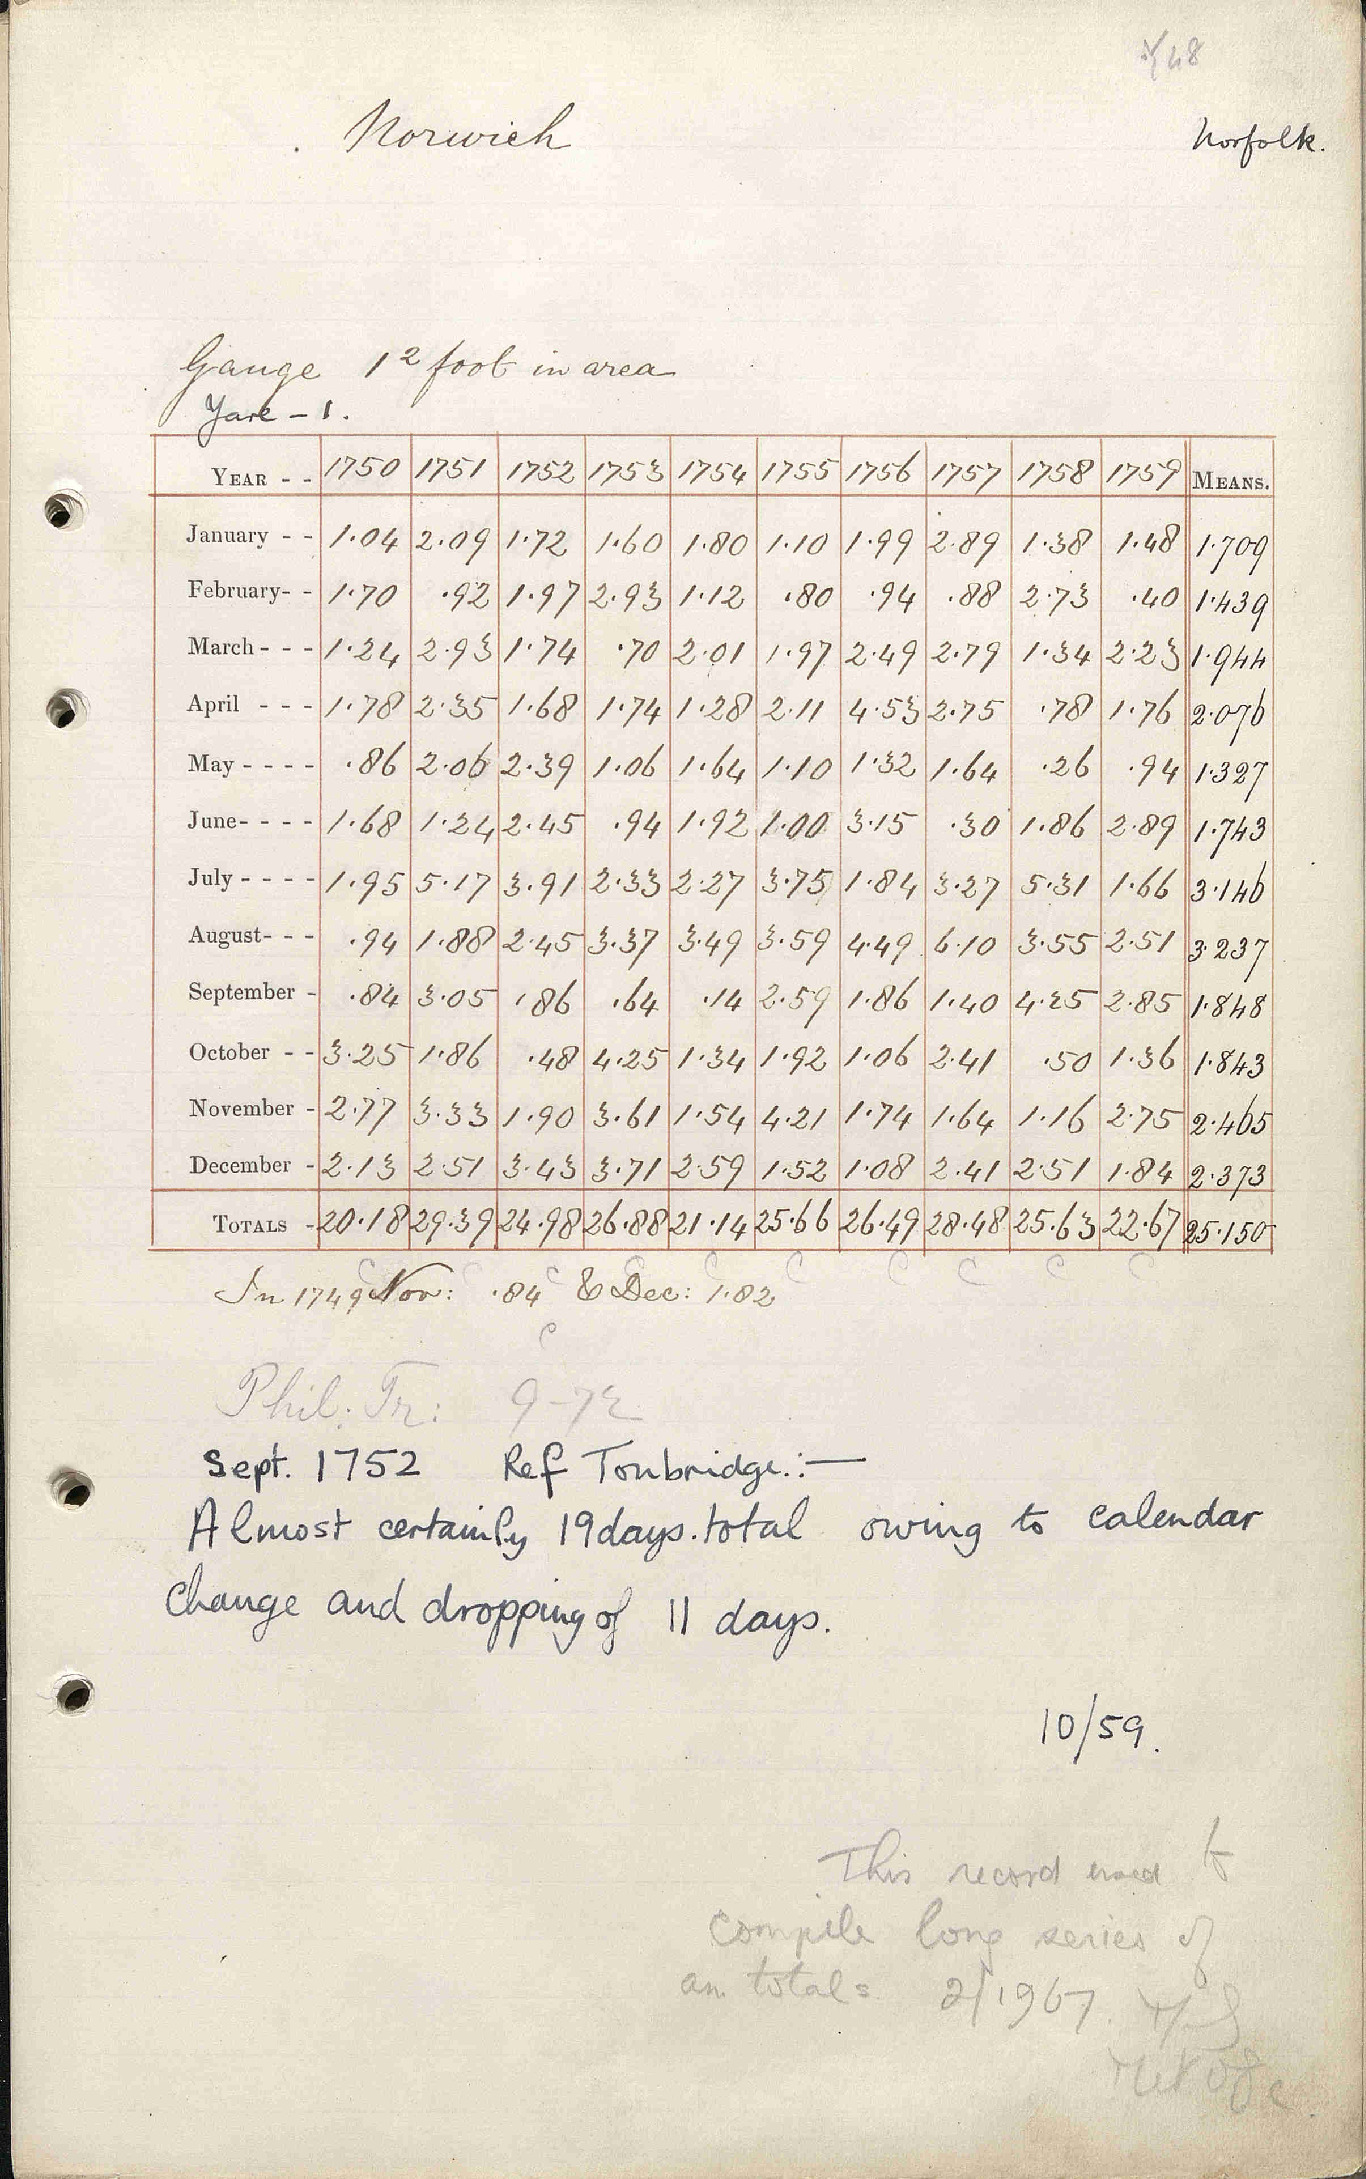 48
Norwich
Norfolk.
Gauge 1² foot in area
Yare - 1.
YEAR - - 1750 1751 1752 1753 1754 1755 1756 1757 1758 1759 MEANS.
January - - 1.04 2.09 1.72 1.60 1.80 1.10 1.99 2.89 1.38 1.48 1.709
February- - 1.70 .92 1.97 2.93 1.12 .80 .94 .88 2.73 .40 1.439
March - - - 1.24 2.93 1.74 .70 2.01 1.97 2.49 2.79 1.34 2.23 1.944
April - - - 1.78 2.35 1.68 1.74 1.28 2.11 4.53 2.75 .78 1.76 2.076
May - - - - .86 2.06 2.39 1.06 1.64 1.10 1.32 1.64 .26 .94 1.327
June- - - - 1.68 1.24 2.45 .94 1.92 1.00 3.15 .30 1.86 2.89 1.743
July - - - - 1.95 5.17 3.91 2.33 2.27 3.75 1.84 3.27 5.31 1.66 3.146
August- - - .94 1.88 2.45 3.37 3.49 3.59 4.49 6.10 3.55 2.51 3.237
September - .84 3.05 .86 .64 .14 2.59 1.86 1.40 4.25 2.85 1.848
October - - 3.25 1.86 .48 4.25 1.34 1.92 1.06 2.41 .50 1.36 1.843
November - 2.77 3.33 1.90 3.61 1.54 4.21 1.74 1.64 1.16 2.75 2.465
December - 2.13 2.51 3.43 3.71 2.59 1.52 1.08 2.41 2.51 1.84 2.373
TOTALS - 20.18 29.39 24.98 26.88 21.14 25.66 26.49 28.48 25.63 22.67 25.150
C C C C C C C C C C
In 1749 Nov: .84 & Dec: 1.82
C
Phil. Tr: 9-72
Sept. 1752 Ref Tonbridge.:—
Almost certainly 19days.total owing to calendar
change and dropping of 11 days.
10/59.
This record used to
compile long series of
an totals 2/1967.
Met Offe